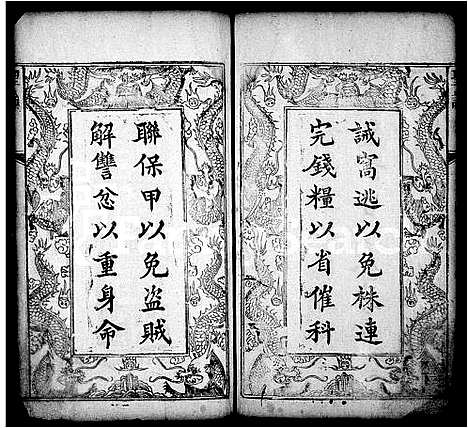 誡窩逃以免株連
完錢糧以省催科
聯保甲以免盜賊
解讐忿以重身命